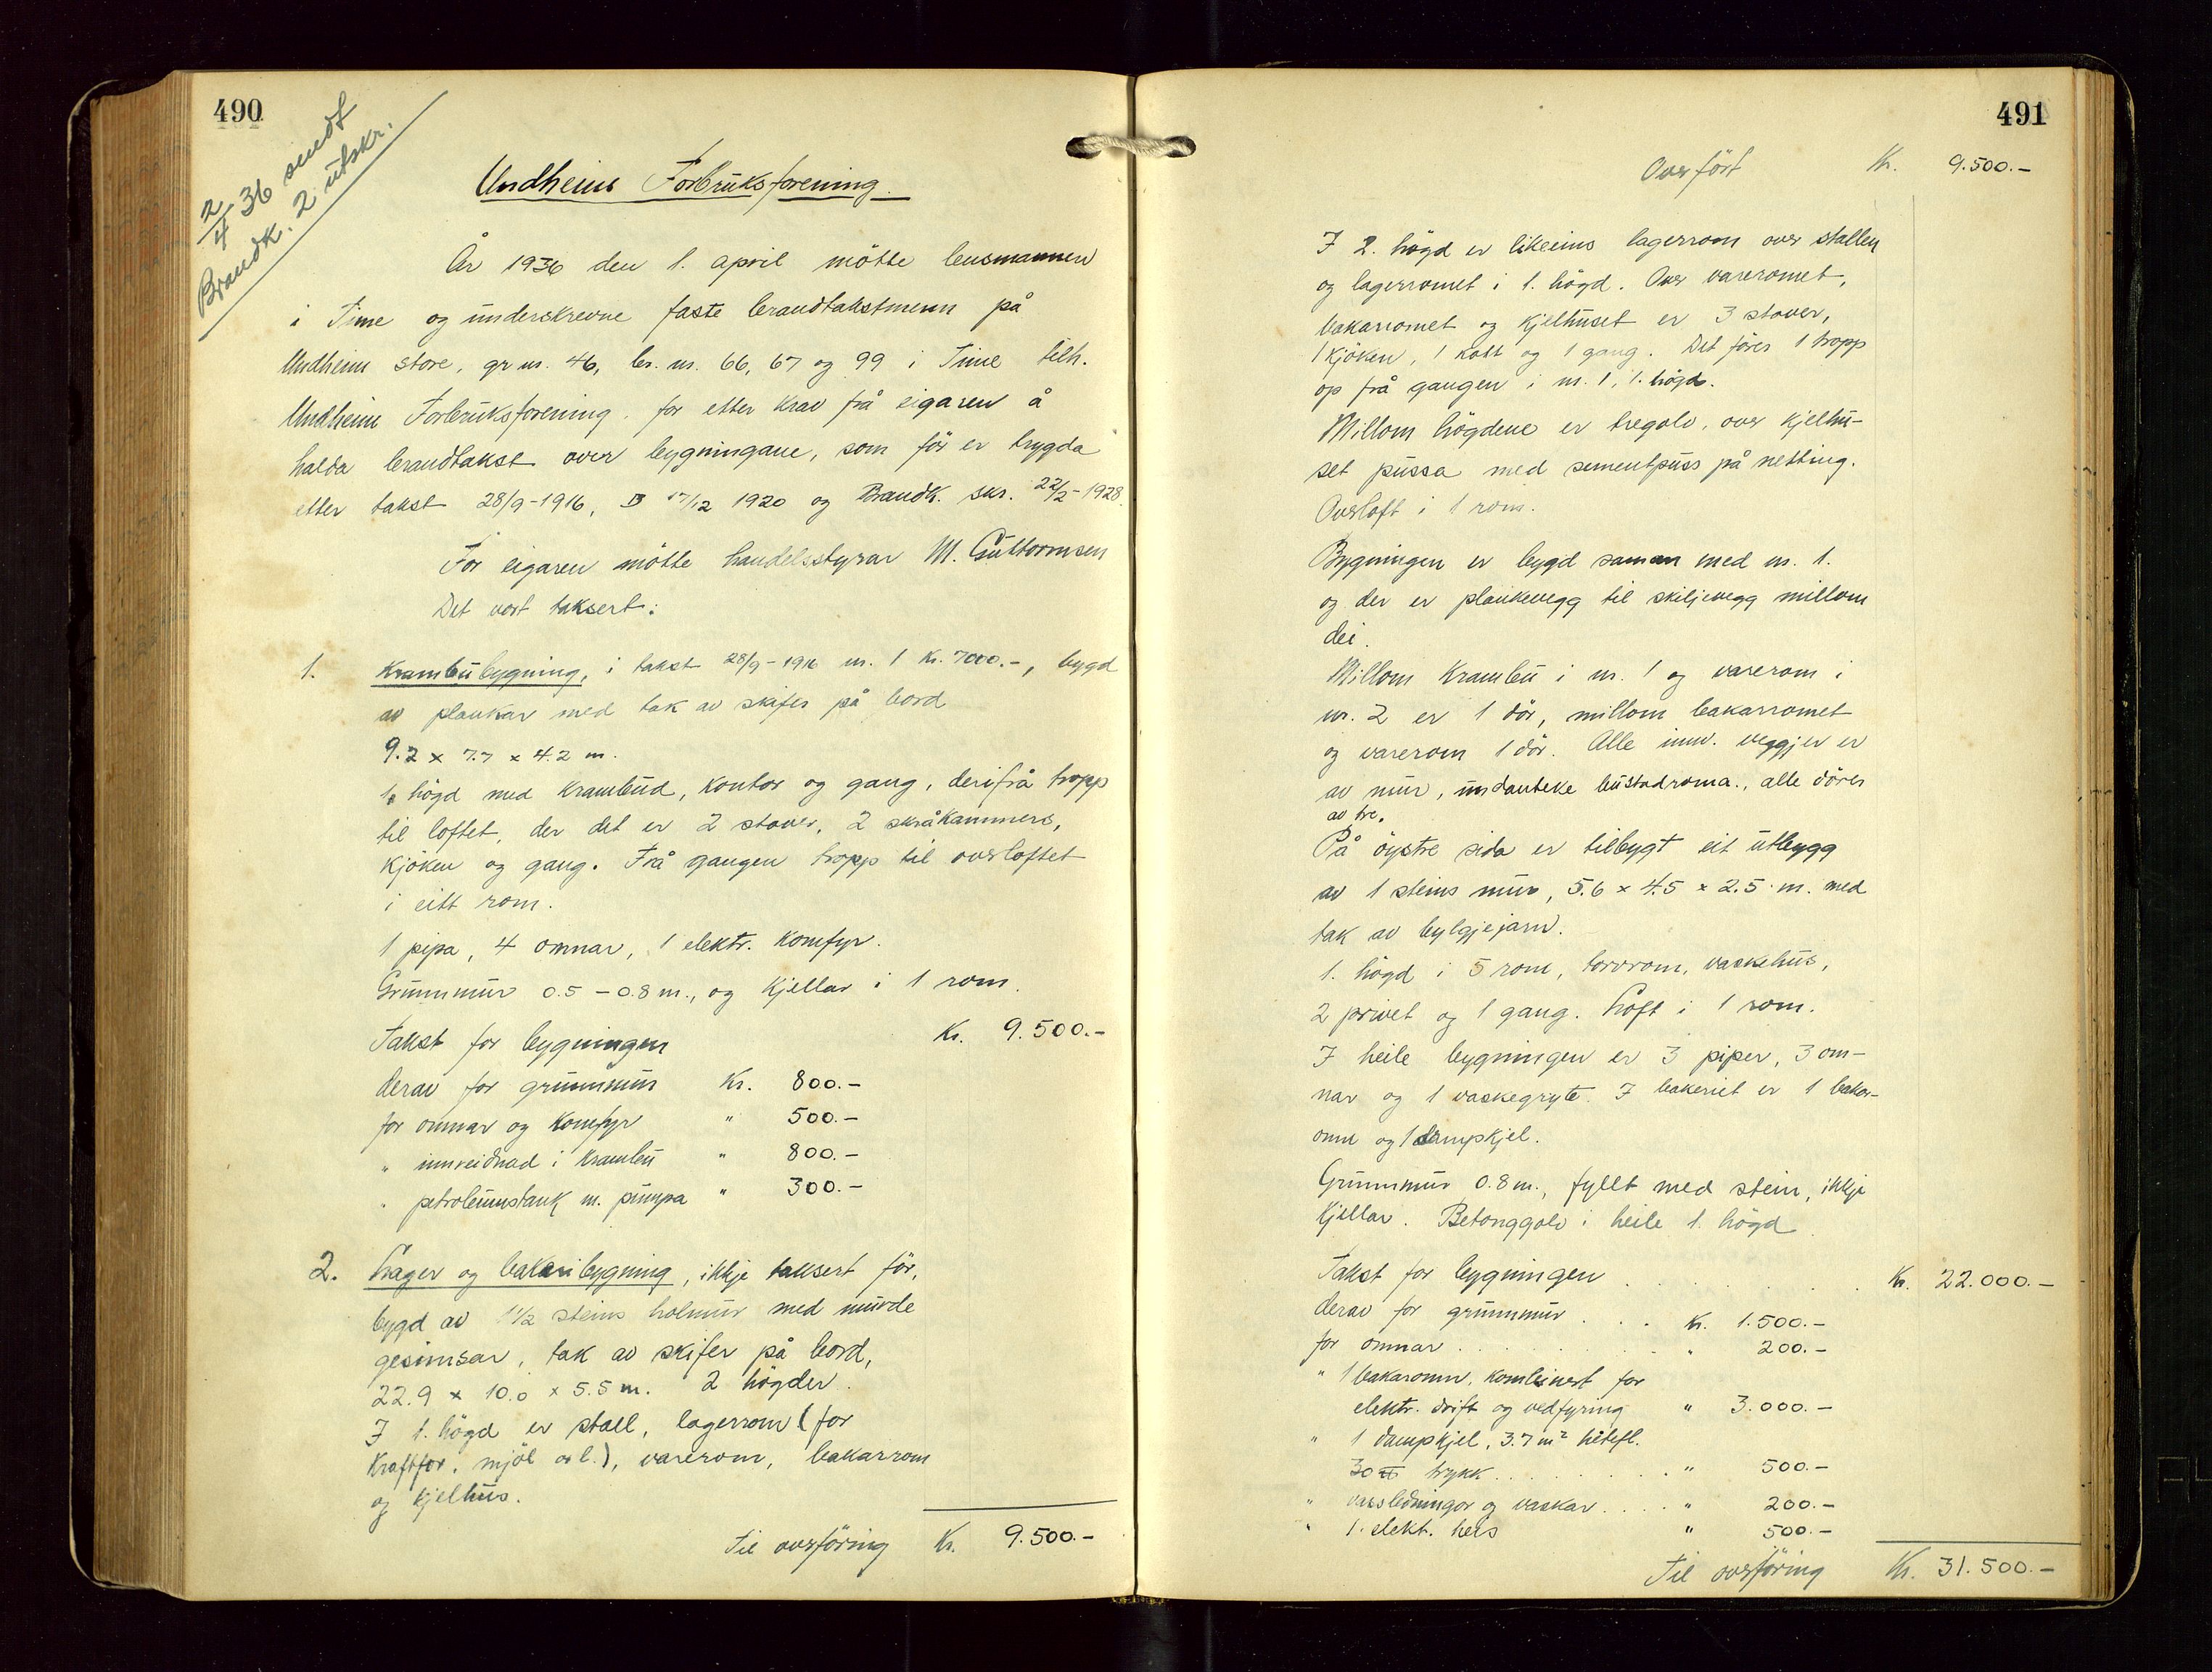 490
2/4 36 sendt
Brandk. 2 utskr.
Undheim Forbruksforening.
År 1936 den 1. april mötte lensmannen
i Time og underskrevne faste brandtakstmenn på
Undheim store, gr nr. 46, br. nr. 66, 67 og 99 i Time tilh.
Undheim Forbruksforening, for etter krav frå eigaren å
halda brandtakst over bygningane, som för er trygda
etter takst 28/9-1916, 17/12 1920 og Brandk. skr. 22/2-1928.
For eigaren mötte handelsstyrar M. Guttormsen
Det vart taksert:
1. Krambubygning, i takst 28/9-1916 nr. 1 Kr. 7000.-, bygd
av plankar med tak av skifer på bord
9.2 x 7.7 x 4.2 m.
1. högd med krambud, kontor og gang, derifrå tropp
til loftet, der det er 2 stover, 2 skråkammers,
kjöken og gang. Frå gangen tropp til overloftet
i eitt rom.
1 pipa, 4 omnar, 1 elektr. komfyr.
Grunnmur 0.5 - 0.8 m., og kjellar i 1 rom.
Takst for bygningen Kr. 9.500.-
derav for grunnmur Kr. 800.-
for omnar og komfyr " 500.-
" innreidnad i krambu " 800.-
" petroleumstank m. pumpa " 300.-
2. Lager og bakaribygning, ikkje taksert för,
bygd av 1 1/2 steins holmur med murde
gesimsar, tak av skifer på bord,
22.9 x 10.0 x 5.5 m. 2 högder.
I 1. högd er stall, lagerrom (for
kraftfor, mjöl o.l.), varerom, bakarrom
og kjelhus.
Til overföring Kr. 9.500.-
491
Overfört Kr. 9.500.-
I 2. högd er likeeins lagerrom over stallen
og lagerromet i 1. högd. Over vareromet,
bakarromet og kjelhuset er 3 stover,
1 kjöken, 1 kott og 1 gang. Det förer 1 tropp
op frå gangen i nr. 1, 1. högd.
Millom högdene er tregolv, over kjelhu-
set pussa med sementpuss på netting.
Overloft i 1 rom.
Bygningen er bygd saman med nr. 1.
og der er plankevegg til skiljevegg millom
dei.
Millom krambu i nr. 1 og varerom i
nr. 2 er 1 dör, millom bakarromet
og varerom 1 dör. Alle innv. veggjer er
av mur, undanteke bustadroma., alle dörer
av tre.
På öystre sida er tilbygt eit utbygg
av 1 steins mur, 5.6 x 4.5 x 2.5 m. med
tak av bylgjejarn.
1. högd i 5 rom, torvrom, vaskehus,
2 privet og 1 gang. Loft i 1 rom.
I heile bygningen er 3 piper, 3 om-
nar og 1 vaskegryte. I bakeriet er 1 bakar-
omn og 1 dampkjel.
Grunnmur 0.8 m., fyllt med stein, ikkje
kjellar. Betonggolv i heile 1. högd.
Takst for bygningen . . . . . Kr. 22.000.-
derav for grunnmur . . . Kr. 1.500.-
for omnar . . . . . " 200.-
" 1 bakaromn, kombinert for
elektr. drift og vedfyring " 3.000.-
" 1 dampkjel, 3.7 m² hetefl.
30 trykk . . . . . " 500.-
" vassledningar og vaskar . . . . " 200.-
" 1. elekt. heis " 500.-
Til overföring Kr. 31.500.-